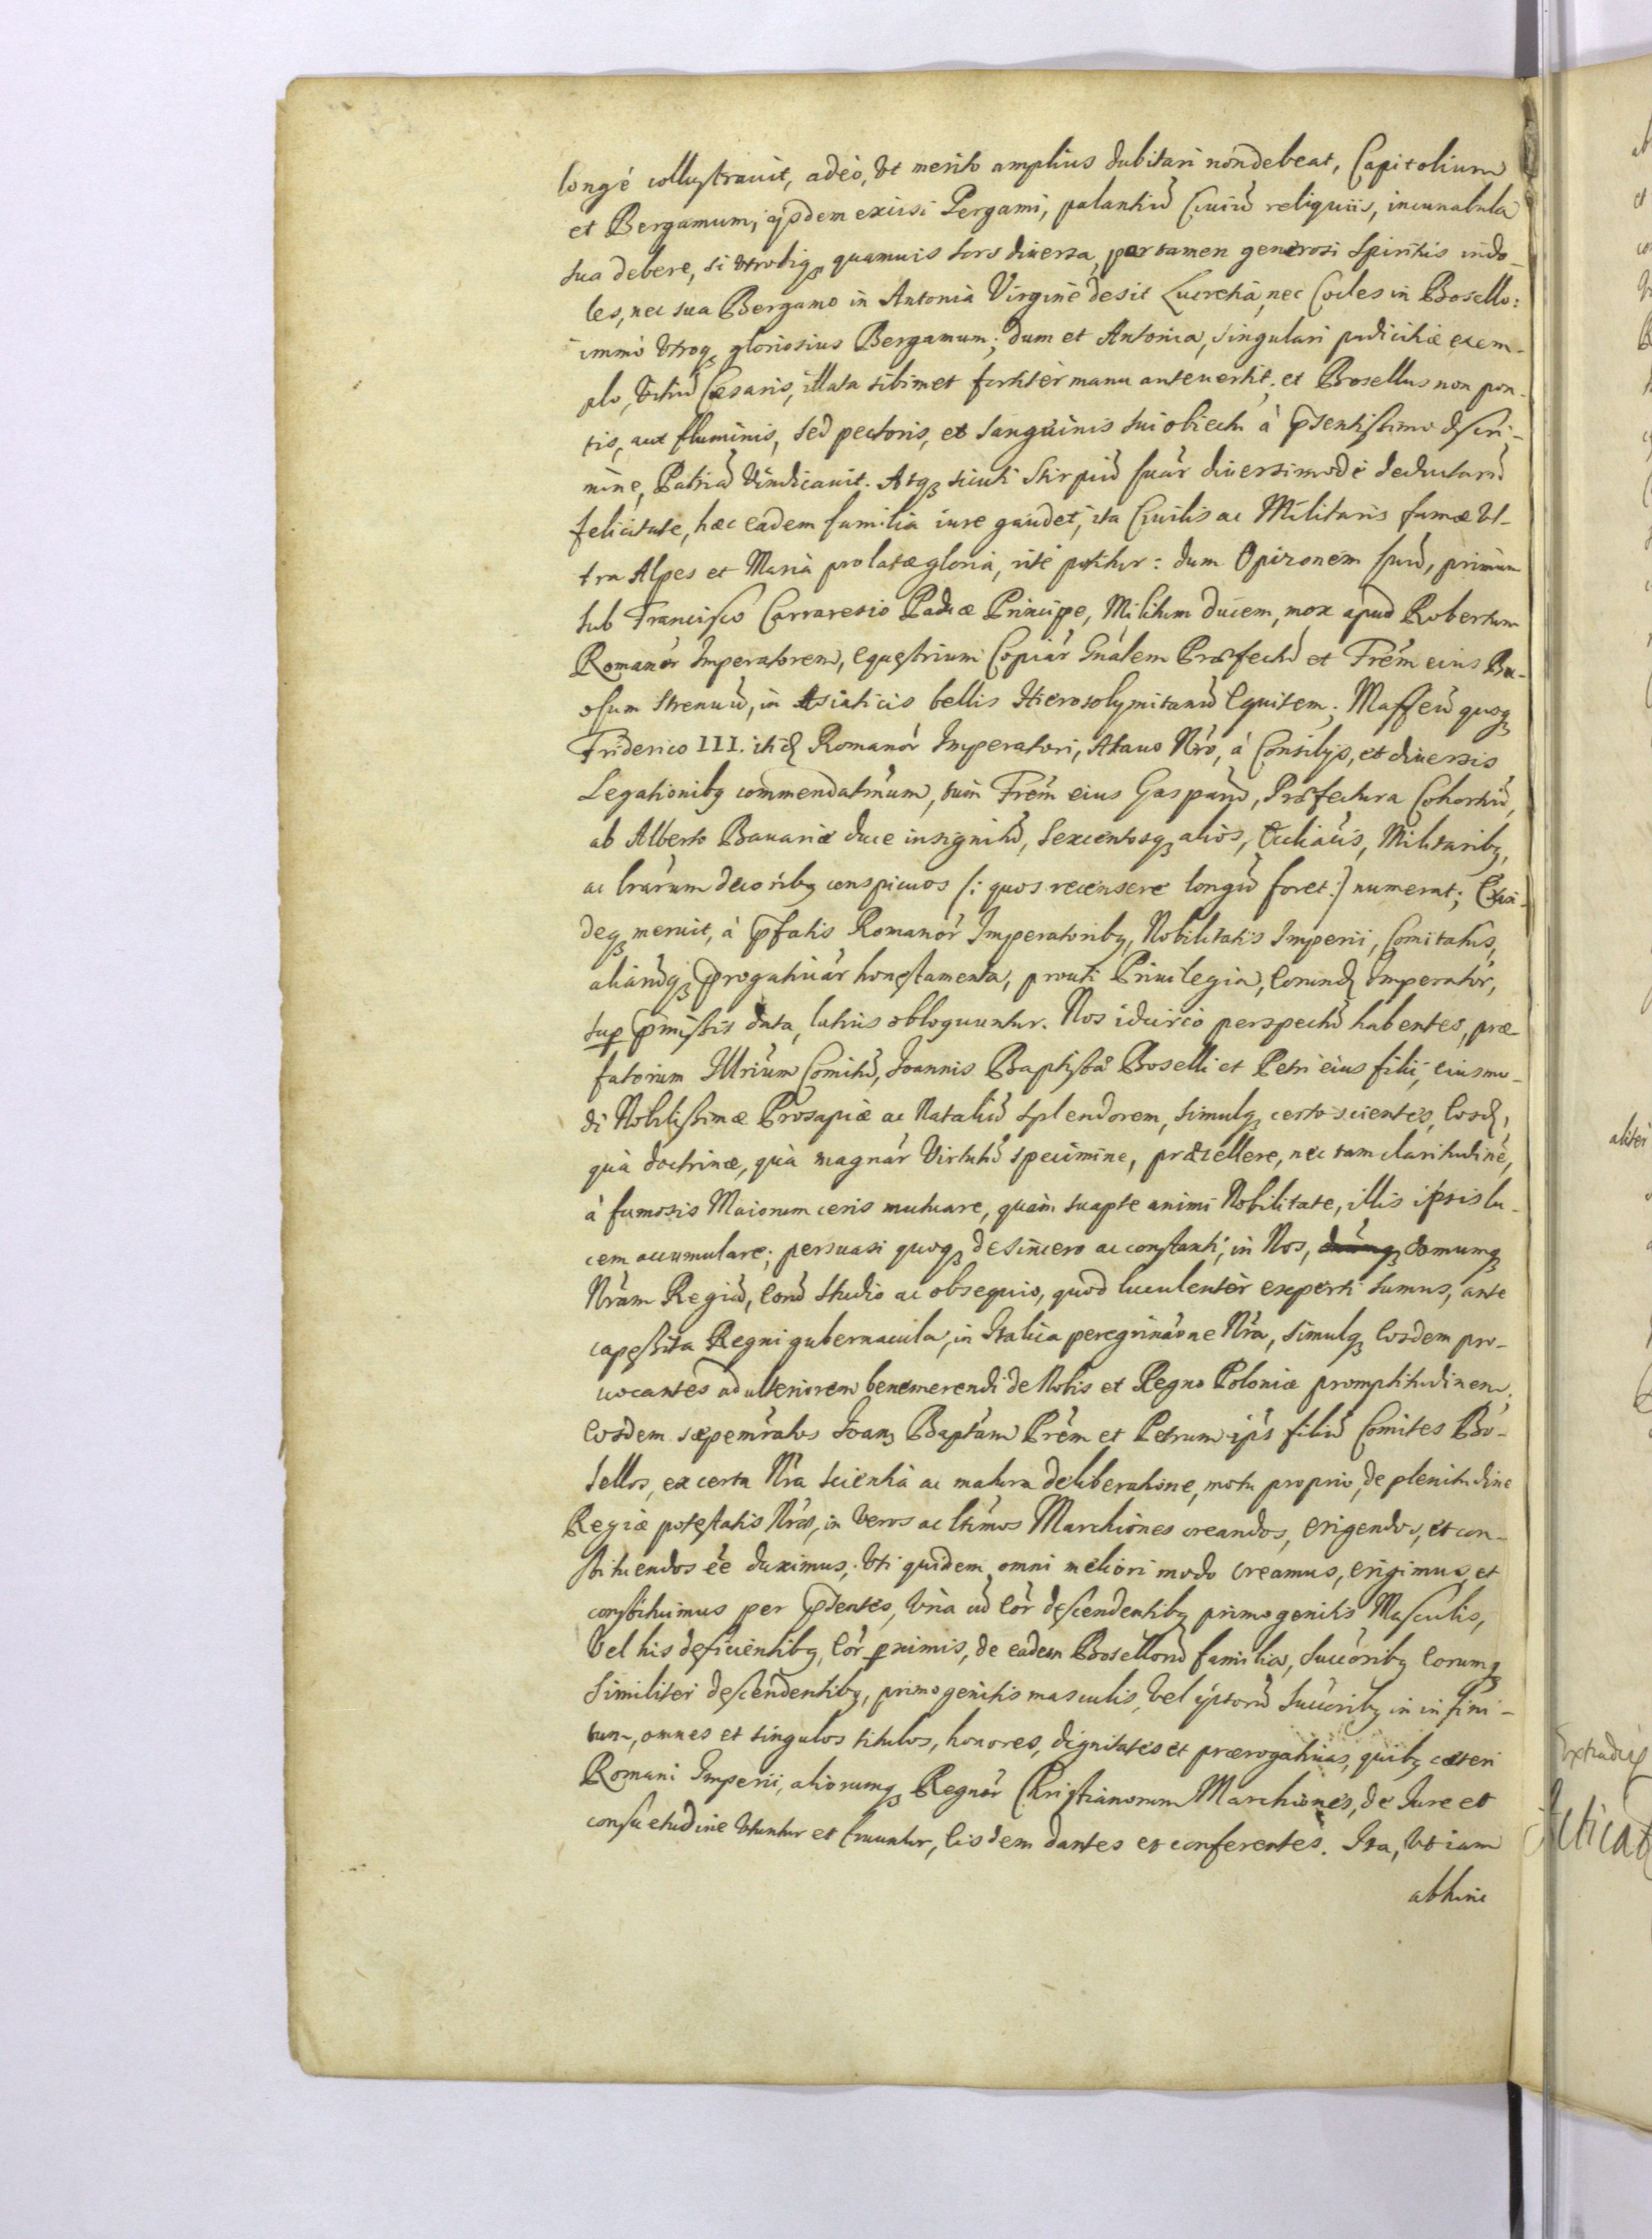 longé collustrauit, adeò, Vt merito amplius dubitari non debeat, Capitolium
et Bergamum, ijsdem excisi Pergami, palantiũ Ciuiũ reliquiis, incunabula
sua debere, si Vtrobiqꝫ quamuis sors diuersa, par tamen generosi Spiritus indo-
les, nec sua Bergamo in Antonià Virginè desit Lucretia, nec Cocles in Bosello:
immò Vtroqꝫ gloriosius Bergamum; dum et Antonia, singulari pudicitiæ exem-
plo, Vitiũ Cæsaris, illata sibimet fortitèr manu anteuertit; et Bosellus non pon-
tis, aut fluminis, sed pectoris, et Sanguinis sui obiectu à pͬsentissimo discri-
mine, Patriã Vindicauit. Atqꝫ sicuti Stirpiũ suar̃ diuersimodè deductarũ
felicitate, hæc eadem familia iure gaudet, ita Ciuilis ac Militaris famæ Vl-
tra Alpes et Maria prolatæ gloria, rité potitur: dum Opizonem suũ, primùm
sub Francisco Carraresio Paduæ Principe, Militum ducem, mox apud Robertum
Romanor̃ Imperatorem, equestrium Copiar̃ Gñalem Præfectũ et Fr̃em eius Bu-
osum strenuũ, in Asiaticis bellis Hierosolymitanũ Equitem; Maffeũ quoqꝫ
Friderico III. itid. Romanor̃ Imperatori, Atauo Nr̃o, à Consilijs, et diuersis
Legationibꝫ commendatissimum, tum Fr̃em eius Gasparũ, Præfectura Cohortiũ,
ab Alberto Bauariæ duce insignitũ, Sexcentosqꝫ aliòs, Ecclĩacis, Militaribꝫ,
ac lr̃arum decoribꝫ conspicuos (: quos recensere longũ foret :) numerat; Exin-
deqꝫ meruit, à pͬfatis Romanor̃ Imperatoribꝫ, Nobilitatis Imperii, Comitatus,
aliarũqꝫ pͬrogatiuar̃ honestamenta, prouti Priuilegia, Eorund. Imperator̃,
sup pͬmissis data, latius obloquuntur. Nos idcircò perspectũ habentes, præ
fatorum Illr̃ium Comitũ, Joannis Baptistæ Boselli et Petri eius filii, eiusmo-
di Nobilissimæ Prosapiæ ac Nataliũ splendorem, simulqꝫ certo scientes, Eosd.,
quà doctrinæ, quà magnar̃ Virtutũ specimine, præcellere, nec tam claritudinè,
à fumosis Maiorum ceris mutuare, quàm suapte animi Nobilitate, illis ipsis lu-
cem accumulare; persuasi quoqꝫ de sincero ac constanti, in Nos, domumqꝫ
Nr̃am Regiã, eorũ studio ac obsequio, quod luculentèr experti sumus, ante
capessita Regni gubernacula, in Italica peregrinãone Nr̃a, simulqꝫ Eosdem pro-
uocantes ad ulteriorem benemerendi de Nobis et Regno Poloniæ promptitudinem,
Eosdem sæpemr̃atos Joanꝫ Baptam Pr̃em et Petrum ips filiũ Comites Bo-
sellos, ex certa Nr̃a scientia ac matura deliberatione, motu proprio, de plenitudine
Regiæ potestatis Nr̃æ, in Veros ac ltimos Marchiones creandos, erigendos, et con-
stituendos ẽe duximus; Vti quidem omni meliori modo Creamus, erigimus, et
constituimus per pͬsentes, Vnà cũ eor̃ descendentibꝫ primogenitis Masculis,
Vel his deficientibꝫ, eor̃ pximis, de eadem Bosellorũ familia, succoribꝫ Eorumqꝫ
similiter descendentibꝫ, primogenitis masculis, Vel ipsorũ succoribꝫ in infini-
tum, omnes et singulos titulos, honores, dignitates et prærogatiuas, quibꝫ cæteri
Romani Imperii, aliorumqꝫ Regnor̃ Christianorum Marchiones, de Iure et
consuetudine Vtuntur et fruuntur, Eisdem dantes et conferentes. Ita, Vt iam
abhinc
aliter